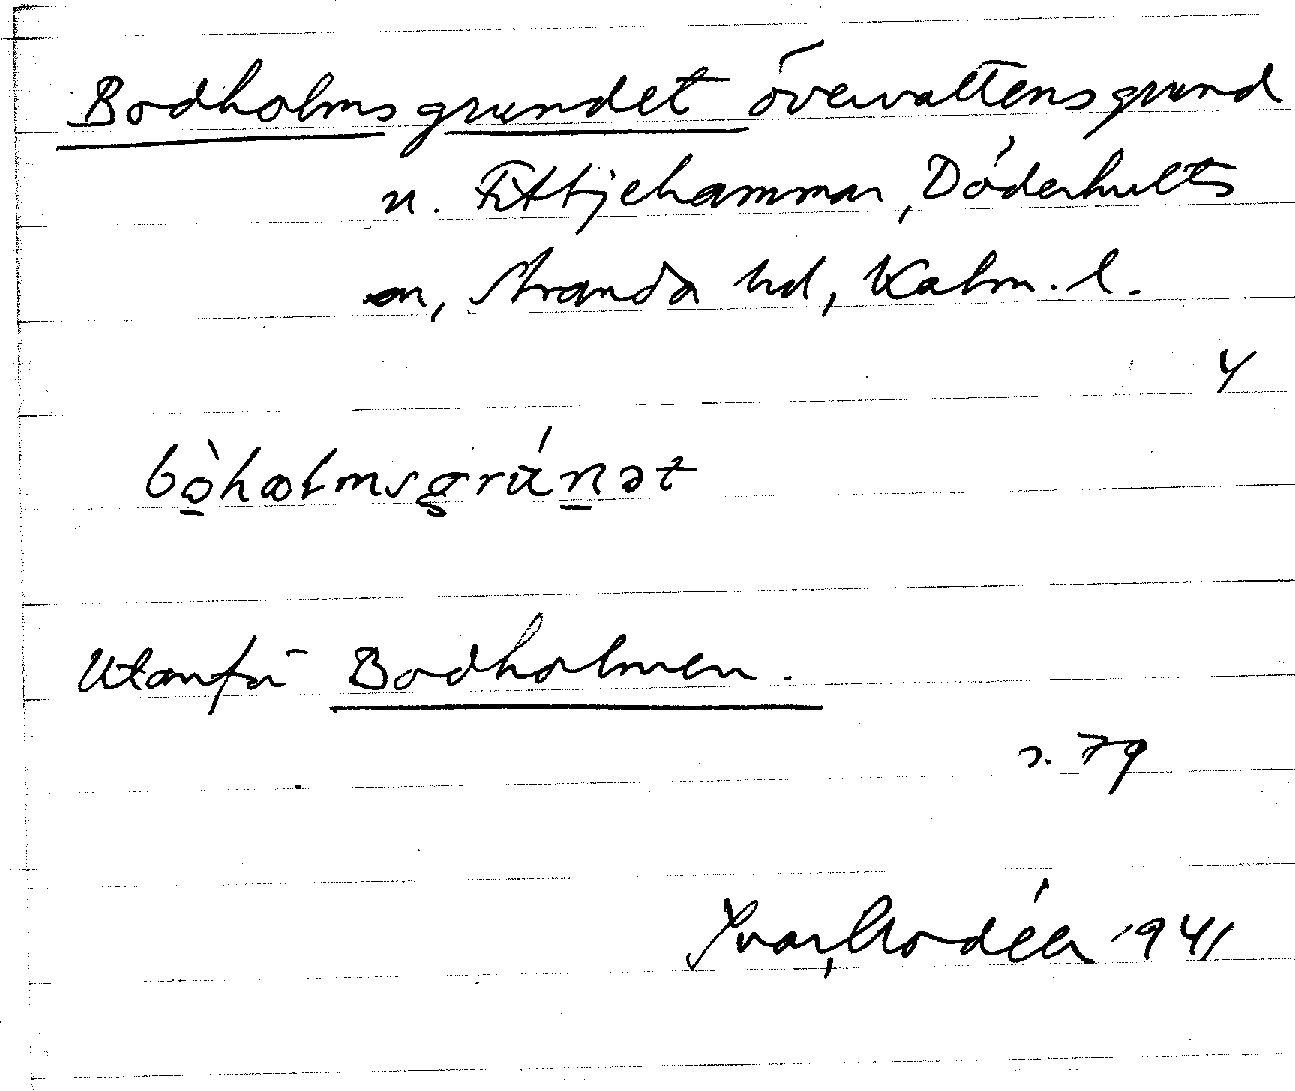 Bodholmsgrundet övervattensgrund
n. Fittjehammar, Döderhults
sn, Stranda hd, Kalm. l.
4
bò̱hɷlmsgrú̱nət
Utanför Bodholmen.
s. 79
Yvar Modéer 1941